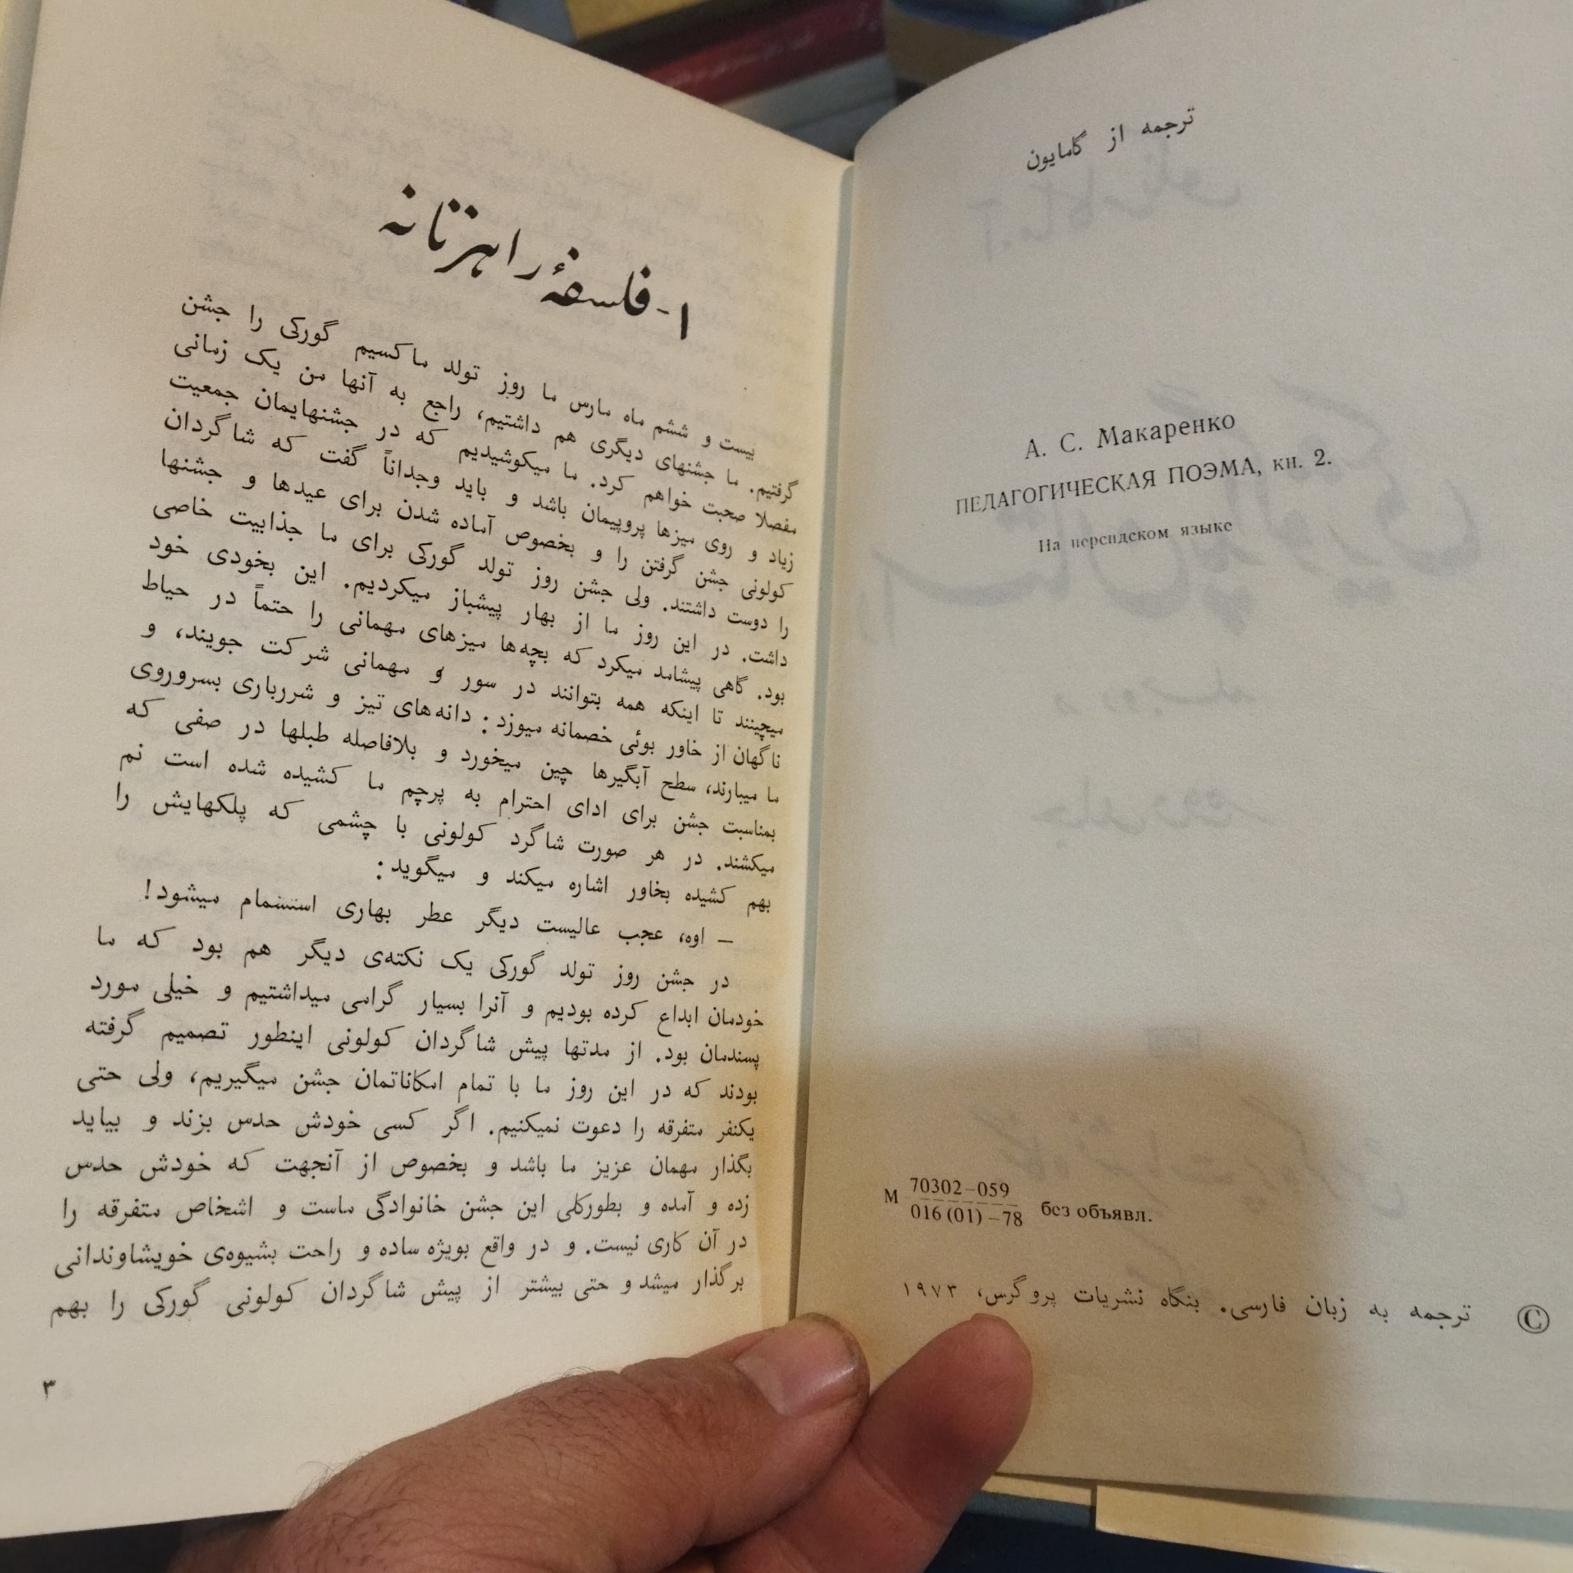 ترجمه از گامایون
А. С. Макаренко
ПЕДАГОГИЧЕСКАЯ ПОЭМА, кн. 2.
На персидском языке
М 70302—059
016(01)—78 без объявл.
© ترجمه به زبان فارسی. بنگاه نشریات پروگرس، ۱۹۷۳
۱- فلسفهٔ راهزنانه
بیست و ششم ماه مارس ما روز تولد ماکسیم گورکی را جشن
گرفتیم. ما جشنهای دیگری هم داشتیم، راجع به آنها من یک زمانی
مفصلا صحبت خواهم کرد. ما میکوشیدیم که در جشنهایمان جمعیت
زیاد و روی میزها پروپیمان باشد و باید وجداناً گفت که شاگردان
کولونی جشن گرفتن را و بخصوص آماده شدن برای عیدها و جشنها
را دوست داشتند. ولی جشن روز تولد گورکی برای ما جذابیت خاصی
داشت. در این روز ما از بهار پیشباز میکردیم. این بخودی خود
بود. گاهی پیشامد میکرد که بچه‌ها میزهای مهمانی را حتماً در حیاط
میچینند تا اینکه همه بتوانند در سور و مهمانی شرکت جویند، و
ناگهان از خاور بوئی خصمانه میوزد: دانه‌های تیز و شررباری بسروروی
ما میبارند، سطح آبگیرها چین میخورد و بلافاصله طبلها در صفی که
بمناسبت جشن برای ادای احترام به پرچم ما کشیده شده است نم
میکشند. در هر صورت شاگرد کولونی با چشمی که پلکهایش را
بهم کشیده بخاور اشاره میکند و میگوید:
— اوه، عجب عالیست دیگر عطر بهاری استشمام میشود!
در جشن روز تولد گورکی یک نکته‌ی دیگر هم بود که ما
خودمان ابداع کرده بودیم و آنرا بسیار گرامی میداشتیم و خیلی مورد
پسندمان بود. از مدتها پیش شاگردان کولونی اینطور تصمیم گرفته
بودند که در این روز ما با تمام امکاناتمان جشن میگیریم، ولی حتی
یکنفر متفرقه را دعوت نمیکنیم. اگر کسی خودش حدس بزند و بیاید
بگذار مهمان عزیز ما باشد و بخصوص از آنجهت که خودش حدس
زده و آمده و بطورکلی این جشن خانوادگی ماست و اشخاص متفرقه را
در آن کاری نیست. و در واقع بویژه ساده و راحت بشیوه‌ی خویشاوندانی
برگذار میشد و حتی بیشتر از پیش شاگردان کولونی گورکی را بهم
۳